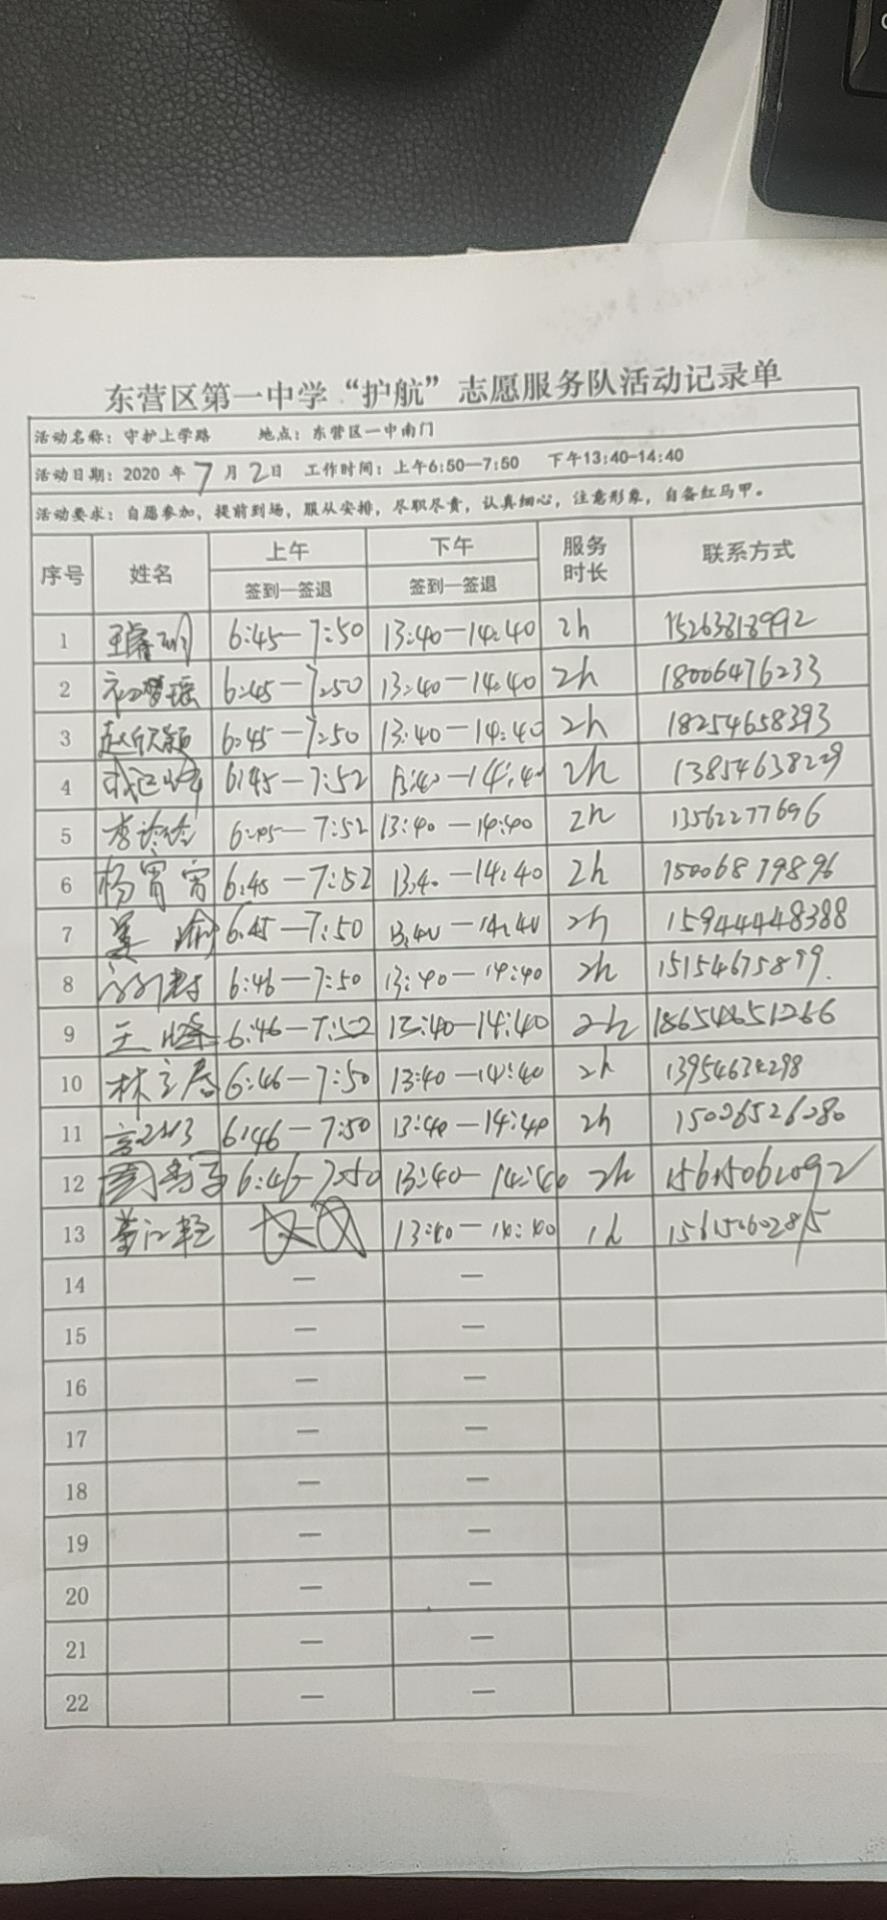 东营区第一中学“护航”志愿服务队活动记录单
活动名称：守护上学路 地点：东营区一中南门
活动日期：2020 年 7 月 2 日 工作时间：上午6:50—7:50 下午13:40-14:40
活动要求：自愿参加，提前到场，服从安排，尽职尽责，认真细心，注意形象，自备红马甲。
序号 姓名 上午 下午 服务时长 联系方式
签到—签退 签到—签退
1 6:45—7:50 13:40—14:40 2h 15263818992
2 初梦瑶 6:45—7:50 13:40—14:40 2h 18006476233
3 赵欣颖 6:45—7:50 13:40—14:40 2h 18254658393
4 6:45—7:52 13:40—14:40 2h 13854638229
5 李玲玲 6:45—7:52 13:40—14:40 2h 13562277696
6 杨宵宵 6:45—7:52 13:40—14:40 2h 15006879896
7 姜瑜 6:45—7:50 13:40—14:40 2h 15944448388
8 6:46—7:50 13:40—14:40 2h 15154675879
9 王 6:46—7:52 13:40—14:40 2h 18654651266
10 林立春 6:46—7:50 13:40—14:40 2h
11 6:46—7:50 13:40—14:40 2h
12 6:46—7:50 13:40—14:40 2h
13 13:40—14:40 1h
14 — —
15 — —
16 — —
17 — —
18 — —
19 — —
20 — —
21 — —
22 — —